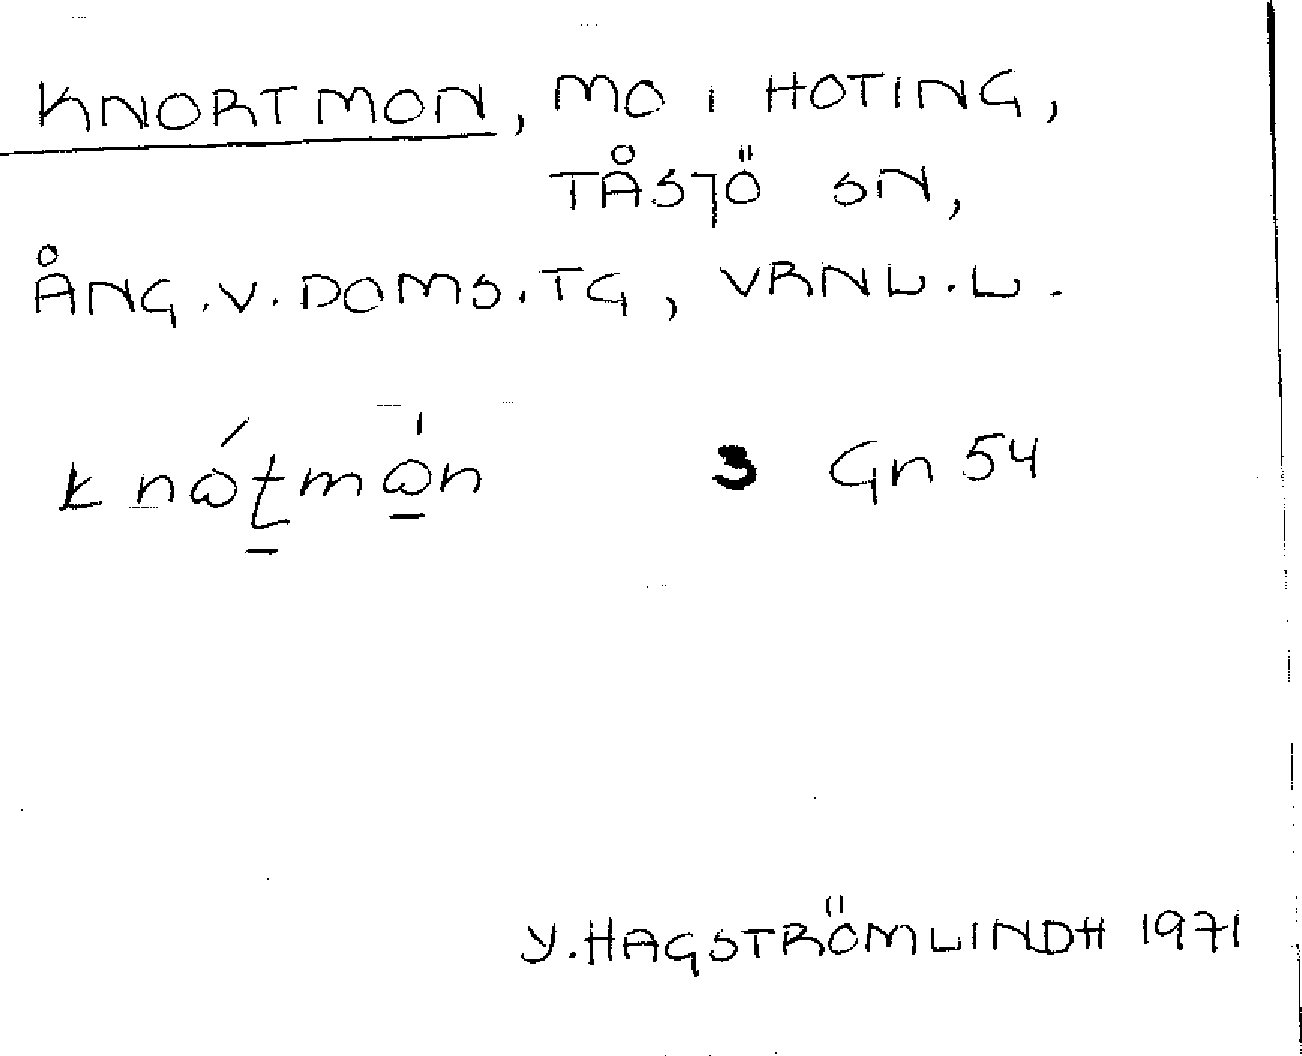 KNORTMON, MO I HOTING,
TÅSJÖ SN,
ÅNG. V. DOMS. TG, VRNL. L.
3 Gn 54
Y. HAGSTRÖMLINDH 1971